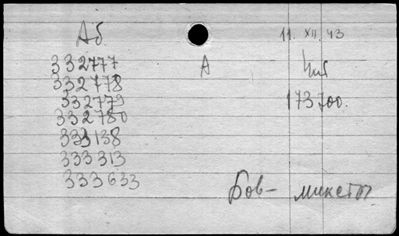 Аб 11. XII. 43
332777 А
332778
332779 173700.
332780
333138
333313
333633
Бов- микеты